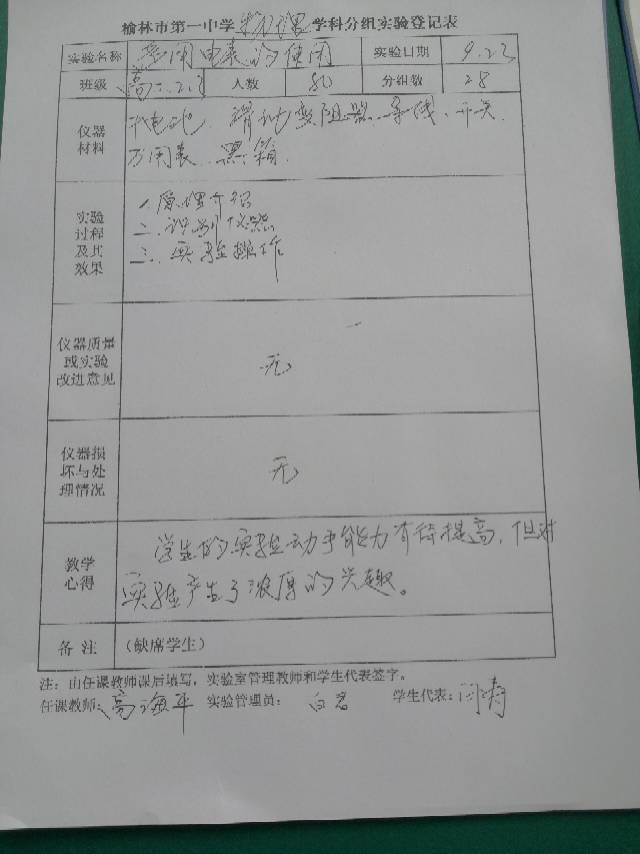 榆林市第一中学物理学科分组实验登记表
实验名称 多用电表的使用 实验日期 9.23
班级 高二.2.3 人数 80 分组数 28
仪器材料 干电池、滑动变阻器、导线、开关、
万用表、黑箱.
实验过程及其效果 一.原理介绍
二.识别仪器
三.实验操作
仪器质量或实验改进意见 无
仪器损坏与处理情况 无
教学心得 学生的实验动手能力有待提高,但对
实验产生了浓厚的兴趣。
备注 (缺席学生)
注:由任课教师课后填写,实验室管理教师和学生代表签字。
任课教师:高海平 实验管理员: 学生代表:闫涛